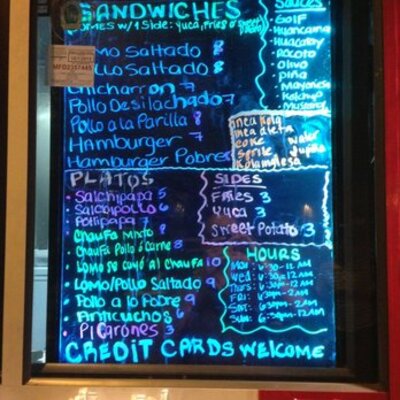 SANDWICHES
COMES w/ 1 SIDE: yuca, Fries or sweet
Lomo Saltado 8
Pollo Saltado 8
Chicharron 7
Pollo Desilachado 7
Pollo a la Parilla 8
Hamburger 7
Hamburger Pobre
Sauces
Golf
Huancaina
Huacatay
Rocoto
Olivo
Piña
Mayonesa
Ketchup
Mustard
Inca Kola
Inca dieta
Coke Water
Sprite
PLATOS
Salchipapa 5
Salchipollo 6
Pollipapa 7
Chaufa Mixto 9
Chaufa Pollo ó Carne 8
Lomo se cayó al Chaufa 10
Lomo/Pollo Saltado 9
Pollo a lo Pobre 9
Anticuchos 6
Picarones 3
SIDES
Fries 3
Yuca 3
Sweet Potato 3
HOURS
Mon: 6:30-12AM
Wed: 6:30-12AM
Thurs: 6:30-12AM
Fri: 6:30pm-2AM
Sat: 6:30pm-2AM
Sun: 6:30pm-12AM
CREDIT CARDS WELCOME